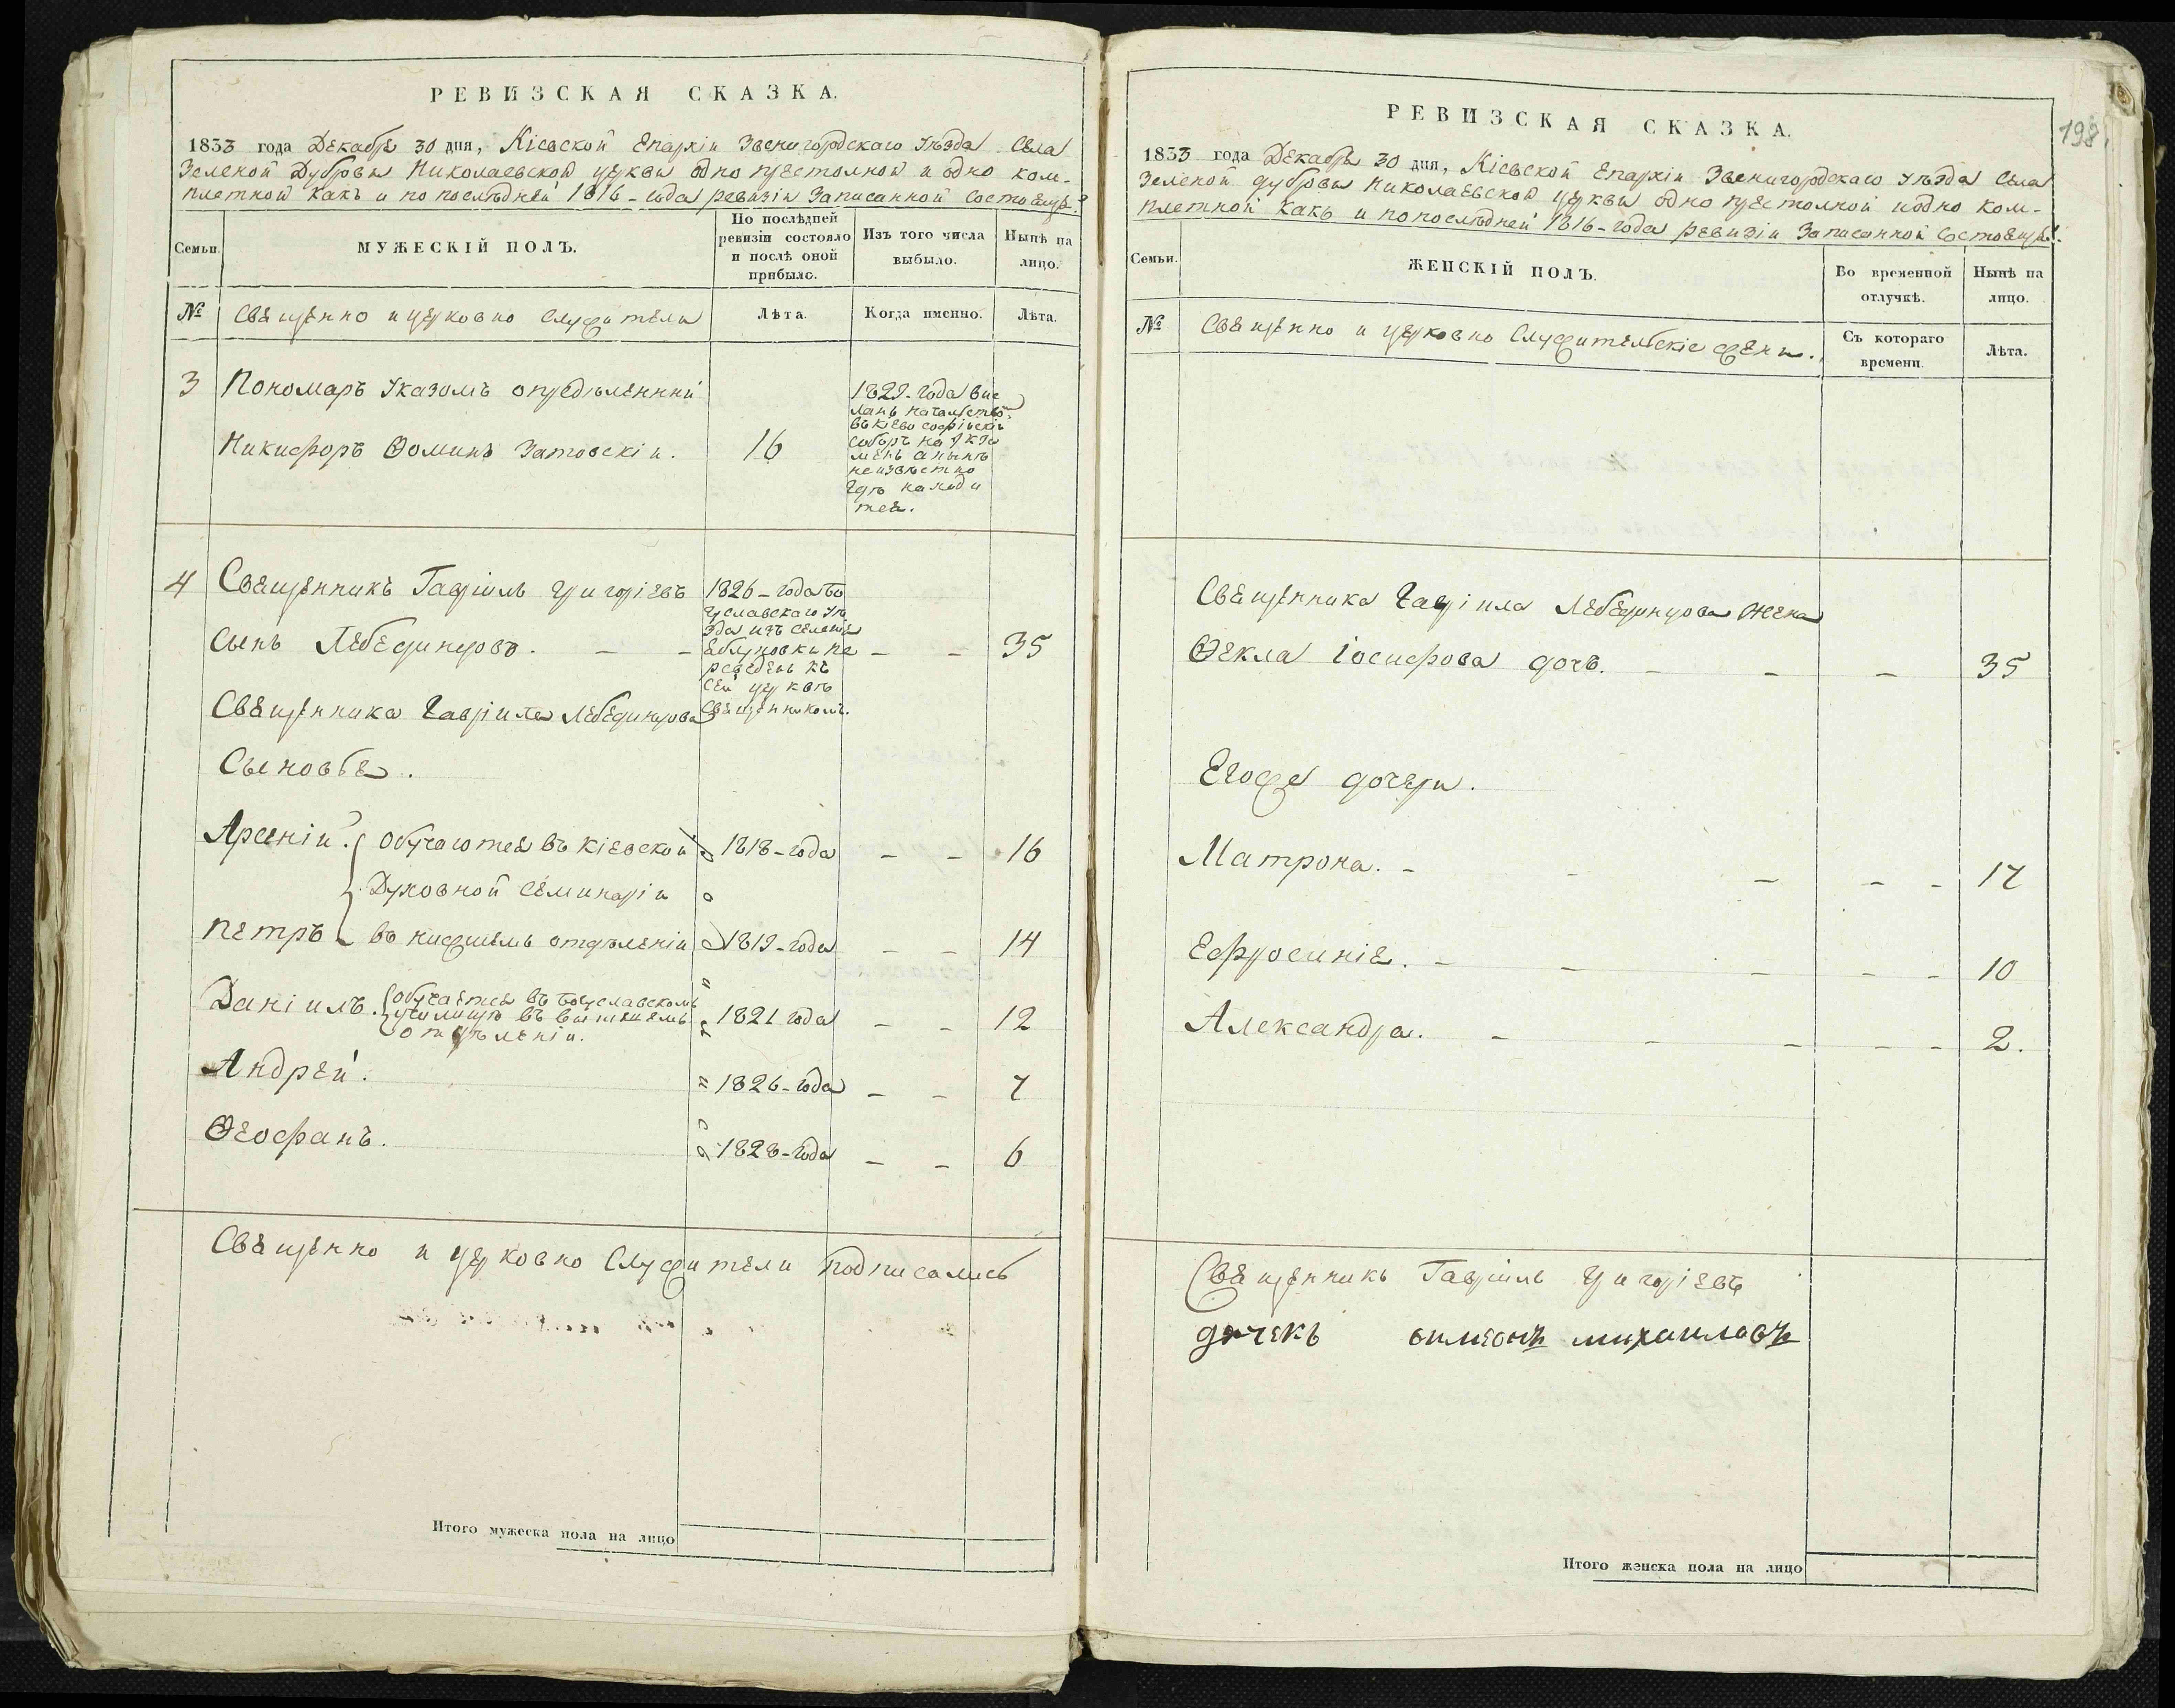 РЕВИЗСКАЯ СКАЗКА.
1833 года Декабря 30 дня, Кіевской Епархіи Звенигородскаго Уѣзда Села
Зеленой Дубровы Николаевской церкви одно престолной и одно ком-
плетной какъ и по послѣдней 1816-года ревизіи Записанной Состоящей
Семьи.
МУЖЕСКІЙ ПОЛЪ.
По послѣдней
ревизіи состояло
и послѣ оной
прибыло.
Изъ того числа
выбыло.
Нынѣ на
лицо.
№
Священно и церковно служители
Лѣта.
Когда именно.
Лѣта.
3 Пономарь Указомъ опредѣленный
Никифоръ Ѳоминъ Затовскій. 16
1829-года вис
ланъ началством
въ Кіево софійскій
соборъ на
а нынѣ
неизвѣстно
гдѣ находи
тся.
4 Священникъ Гавріилъ Григоріевъ
сынъ Лебединцовъ. — — — — 35
1826-года Бо
гуславскаго Уѣ
зда изъ селенія
Яблуновки пе
реведенъ къ
сей церквѣ
священникомъ.
Священника Гавріила Лебединцова
Сыновья.
Арсеній. Обучаются въ Кіевской 1818-года — — 16
Духовной Семинаріи
Петръ въ нисшемъ отдѣленіи 1819-года — — 14
Даніилъ. обучается въ Богуславскомъ
училищѣ въ висшемъ 1821 года — — 12
отдѣленіи.
Андрей. 1826-года — — 7
Ѳеофанъ. 1828-года — — 6
Священно и церковно Служители подписались
Итого мужеска пола на лицо
198
РЕВИЗСКАЯ СКАЗКА.
1833 года Декабря 30 дня, Кіевской Епархіи Звенигородскаго Уѣзда Села
Зеленой дубровы Николаевской церкви одно престолной и одно ком-
плетной какъ и по послѣдней 1816-года ревизіи Записанной Состоящей.
Семьи.
ЖЕНСКІЙ ПОЛЪ.
Во временной
отлучкѣ.
Нынѣ на
лицо.
№
Священно и церковно Служителскіе жены.
Съ котораго
времени.
Лѣта.
Священника Гавріила Лебединцова жена
Ѳекла Іосифова дочь. — — — 35
Егожъ дочери.
Матрона. — — — — — 17
Ефросинія. — — — — — 10
Александра. — — — — — 2.
Священникъ Гавріилъ Григоріевъ
дячекъ симеонъ михаиловъ
Итого женска пола на лицо